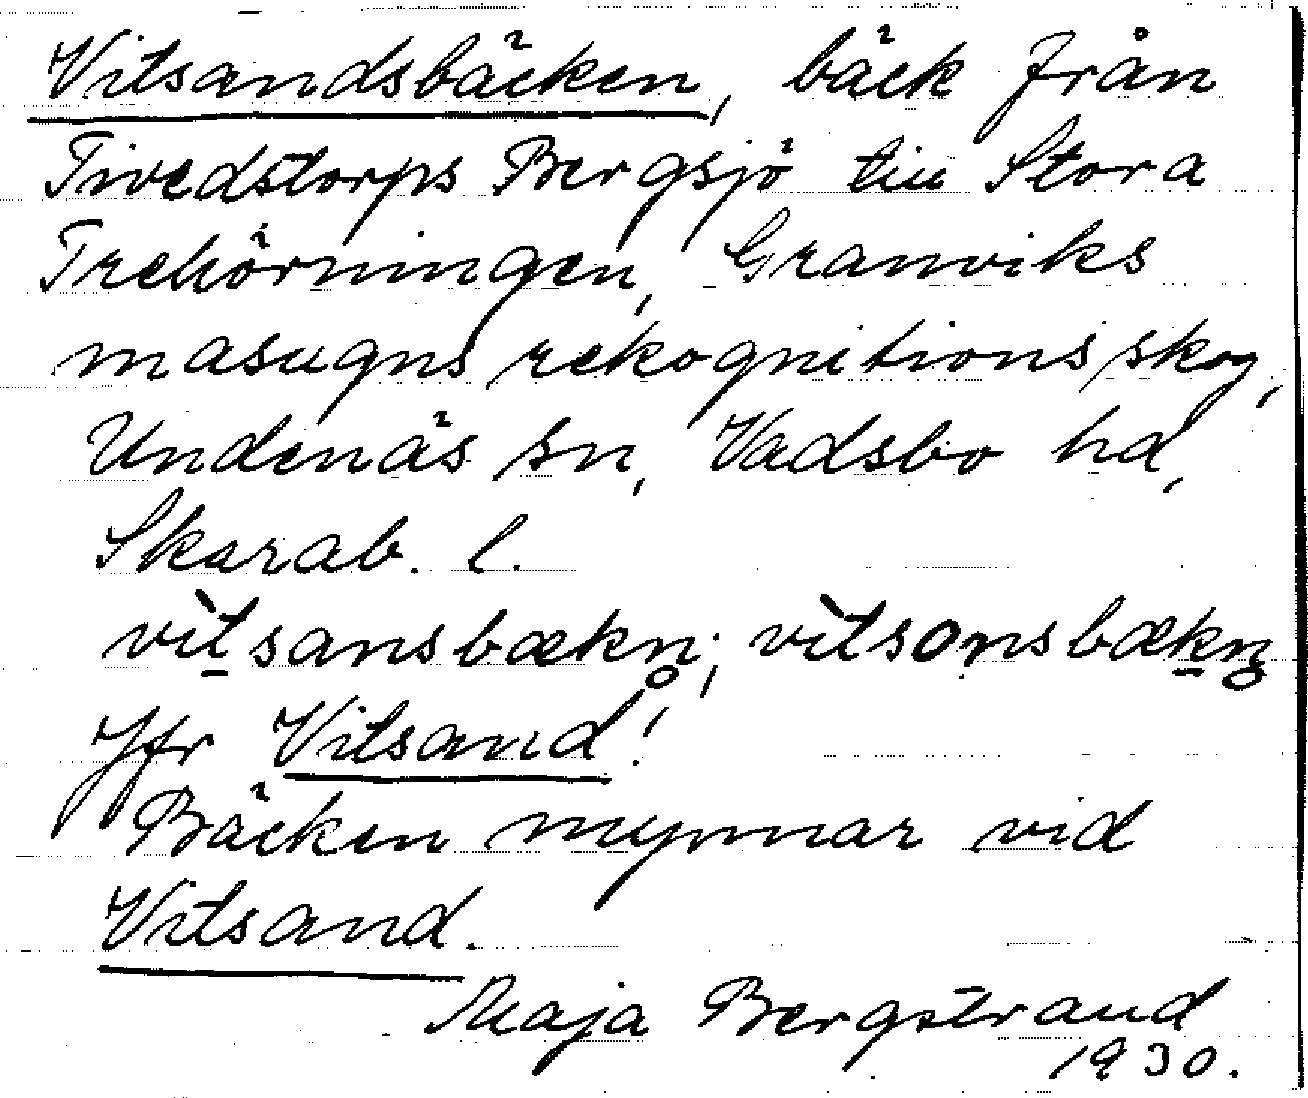 Vitsandsbäcken, bäck från
Tivedstorps Bergsjö till Stora
Trehörningen, Granviks
masugns rekognitionsskog,
Undenäs sn, Vadsbo hd,
Skarab. l.
vìt̠sansbækn̥; vìtsonsbæk̠n̥
Jfr Vitsand!
Bäcken mynnar vid
Vitsand.
Maja Bergstrand
1930.